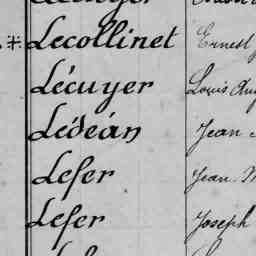 Lecollinet Ernest
Lécuyer Louis
Lédeán Jean
Lefer Jean M
Lefer Joseph